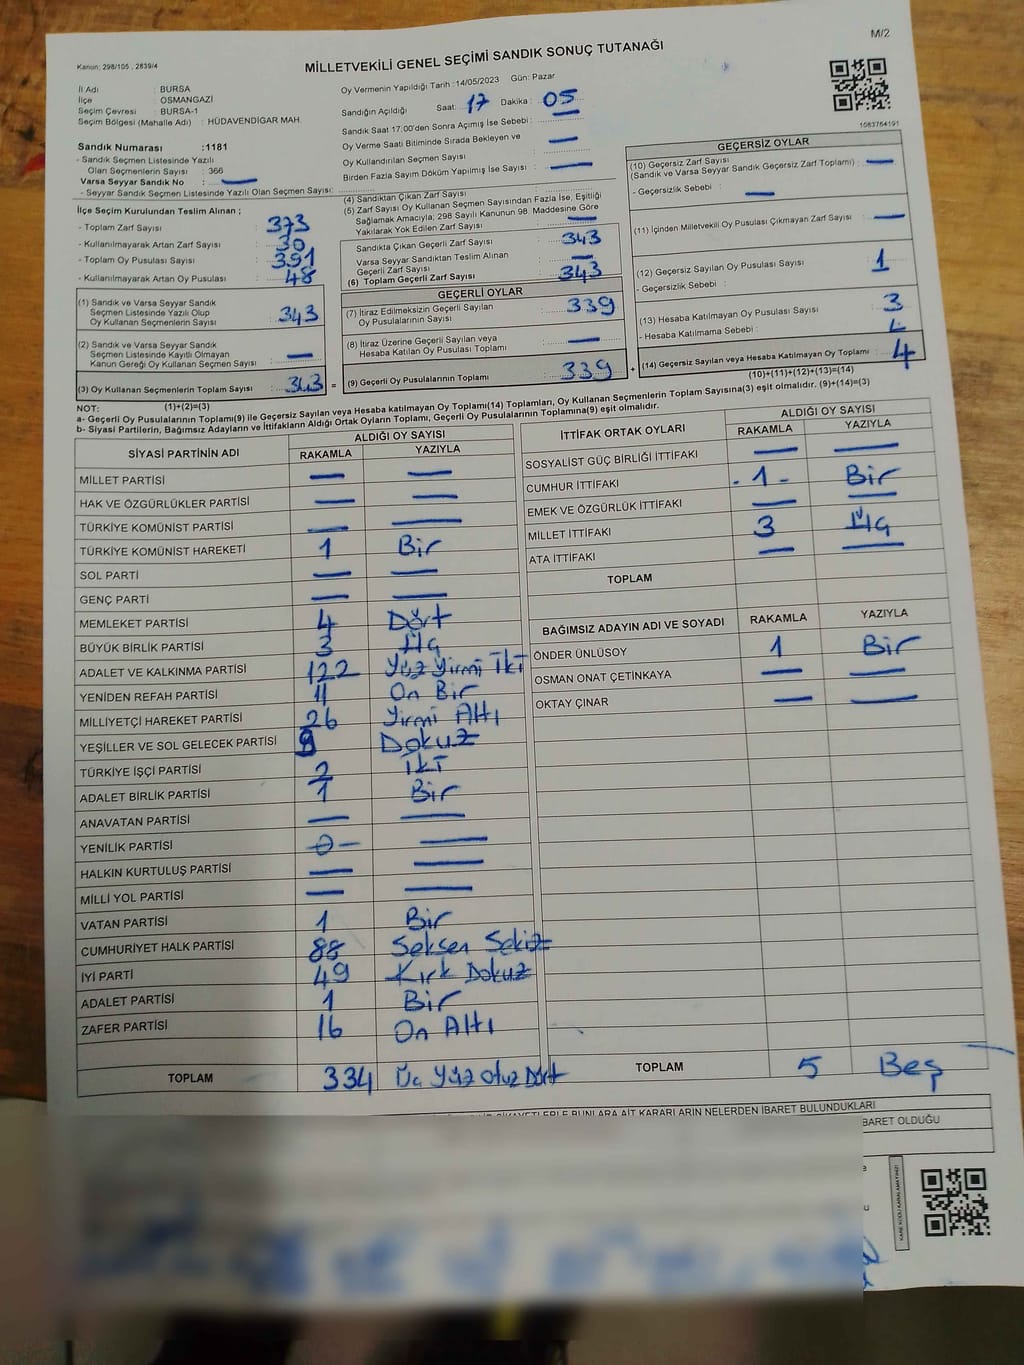 M/2
Kanun: 298/105 , 2839/4
MİLLETVEKİLİ GENEL SEÇİMİ SANDIK SONUÇ TUTANAĞI
İl Adı : BURSA
İlçe : OSMANGAZİ
Seçim Çevresi : BURSA-1
Seçim Bölgesi (Mahalle Adı) : HÜDAVENDİGAR MAH.
Sandık Numarası :1181
- Sandık Seçmen Listesinde Yazılı
Olan Seçmenlerin Sayısı : 366
Varsa Seyyar Sandık No : —
- Seyyar Sandık Seçmen Listesinde Yazılı Olan Seçmen Sayısı:
Oy Vermenin Yapıldığı Tarih :14/05/2023 Gün: Pazar
Sandığın Açıldığı Saat: 17 Dakika : 05
Sandık Saat 17:00'den Sonra Açımış İse Sebebi : —
Oy Verme Saati Bitiminde Sırada Bekleyen ve
Oy Kullandırılan Seçmen Sayısı : —
Birden Fazla Sayım Döküm Yapılmış İse Sayısı : —
1083764191
İlçe Seçim Kurulundan Teslim Alınan ;
- Toplam Zarf Sayısı : 373
- Kullanılmayarak Artan Zarf Sayısı : 30
- Toplam Oy Pusulası Sayısı : 391
- Kullanılmayarak Artan Oy Pusulası : 48
(1) Sandık ve Varsa Seyyar Sandık
Seçmen Listesinde Yazılı Olup
Oy Kullanan Seçmenlerin Sayısı : 343
(2) Sandık ve Varsa Seyyar Sandık
Seçmen Listesinde Kayıtlı Olmayan
Kanun Gereği Oy Kullanan Seçmen Sayısı : —
(3) Oy Kullanan Seçmenlerin Toplam Sayısı : 343 =
(1)+(2)=(3)
(4) Sandıktan Çıkan Zarf Sayısı
(5) Zarf Sayısı Oy Kullanan Seçmen Sayısından Fazla İse, Eşitliği
Sağlamak Amacıyla; 298 Sayılı Kanunun 98. Maddesine Göre
Yakılarak Yok Edilen Zarf Sayısı : —
Sandıkta Çıkan Geçerli Zarf Sayısı : 343
Varsa Seyyar Sandıktan Teslim Alınan
Geçerli Zarf Sayısı : —
(6) Toplam Geçerli Zarf Sayısı : 343
GEÇERLİ OYLAR
(7) İtiraz Edilmeksizin Geçerli Sayılan
Oy Pusulalarının Sayısı : 339
(8) İtiraz Üzerine Geçerli Sayılan veya
Hesaba Katılan Oy Pusulası Toplamı : —
(9) Geçerli Oy Pusulalarının Toplamı : 339 +
GEÇERSİZ OYLAR
(10) Geçersiz Zarf Sayısı
(Sandık ve Varsa Seyyar Sandık Geçersiz Zarf Toplamı) : —
- Geçersizlik Sebebi : —
(11) İçinden Milletvekili Oy Pusulası Çıkmayan Zarf Sayısı : —
(12) Geçersiz Sayılan Oy Pusulası Sayısı : 1
- Geçersizlik Sebebi :
(13) Hesaba Katılmayan Oy Pusulası Sayısı : 3
- Hesaba Katılmama Sebebi :
(14) Geçersiz Sayılan veya Hesaba Katılmayan Oy Toplamı : 4
(10)+(11)+(12)+(13)=(14)
NOT:
a- Geçerli Oy Pusulalarının Toplamı(9) ile Geçersiz Sayılan veya Hesaba katılmayan Oy Toplamı(14) Toplamları, Oy Kullanan Seçmenlerin Toplam Sayısına(3) eşit olmalıdır. (9)+(14)=(3)
b- Siyasi Partilerin, Bağımsız Adayların ve İttifakların Aldığı Ortak Oyların Toplamı, Geçerli Oy Pusulalarının Toplamına(9) eşit olmalıdır.
SİYASİ PARTİNİN ADI
ALDIĞI OY SAYISI
RAKAMLA YAZIYLA
MİLLET PARTİSİ — —
HAK VE ÖZGÜRLÜKLER PARTİSİ — —
TÜRKİYE KOMÜNİST PARTİSİ — —
TÜRKİYE KOMÜNİST HAREKETİ 1 Bir
SOL PARTİ — —
GENÇ PARTİ — —
MEMLEKET PARTİSİ 4 Dört
BÜYÜK BİRLİK PARTİSİ 3 Üç
ADALET VE KALKINMA PARTİSİ 122 Yüz Yirmi İki
YENİDEN REFAH PARTİSİ 11 On Bir
MİLLİYETÇİ HAREKET PARTİSİ 26 Yirmi Altı
YEŞİLLER VE SOL GELECEK PARTİSİ 9 Dokuz
TÜRKİYE İŞÇİ PARTİSİ 2 İki
ADALET BİRLİK PARTİSİ 1 Bir
ANAVATAN PARTİSİ — —
YENİLİK PARTİSİ -0- —
HALKIN KURTULUŞ PARTİSİ — —
MİLLİ YOL PARTİSİ — —
VATAN PARTİSİ 1 Bir
CUMHURİYET HALK PARTİSİ 88 Seksen Sekiz
İYİ PARTİ 49 Kırk Dokuz
ADALET PARTİSİ 1 Bir
ZAFER PARTİSİ 16 On Altı
TOPLAM 334 Üç Yüz Otuz Dört
İTTİFAK ORTAK OYLARI
ALDIĞI OY SAYISI
RAKAMLA YAZIYLA
SOSYALİST GÜÇ BİRLİĞİ İTTİFAKI — —
CUMHUR İTTİFAKI -1- Bir
EMEK VE ÖZGÜRLÜK İTTİFAKI — —
MİLLET İTTİFAKI 3 Üç
ATA İTTİFAKI — —
TOPLAM
BAĞIMSIZ ADAYIN ADI VE SOYADI RAKAMLA YAZIYLA
ÖNDER ÜNLÜSOY 1 Bir
OSMAN ONAT ÇETİNKAYA — —
OKTAY ÇINAR — —
TOPLAM 5 Beş
ŞİKAYETLERLE BUNLARA AİT KARARLARIN NELERDEN İBARET BULUNDUKLARI
BARET OLDUĞU